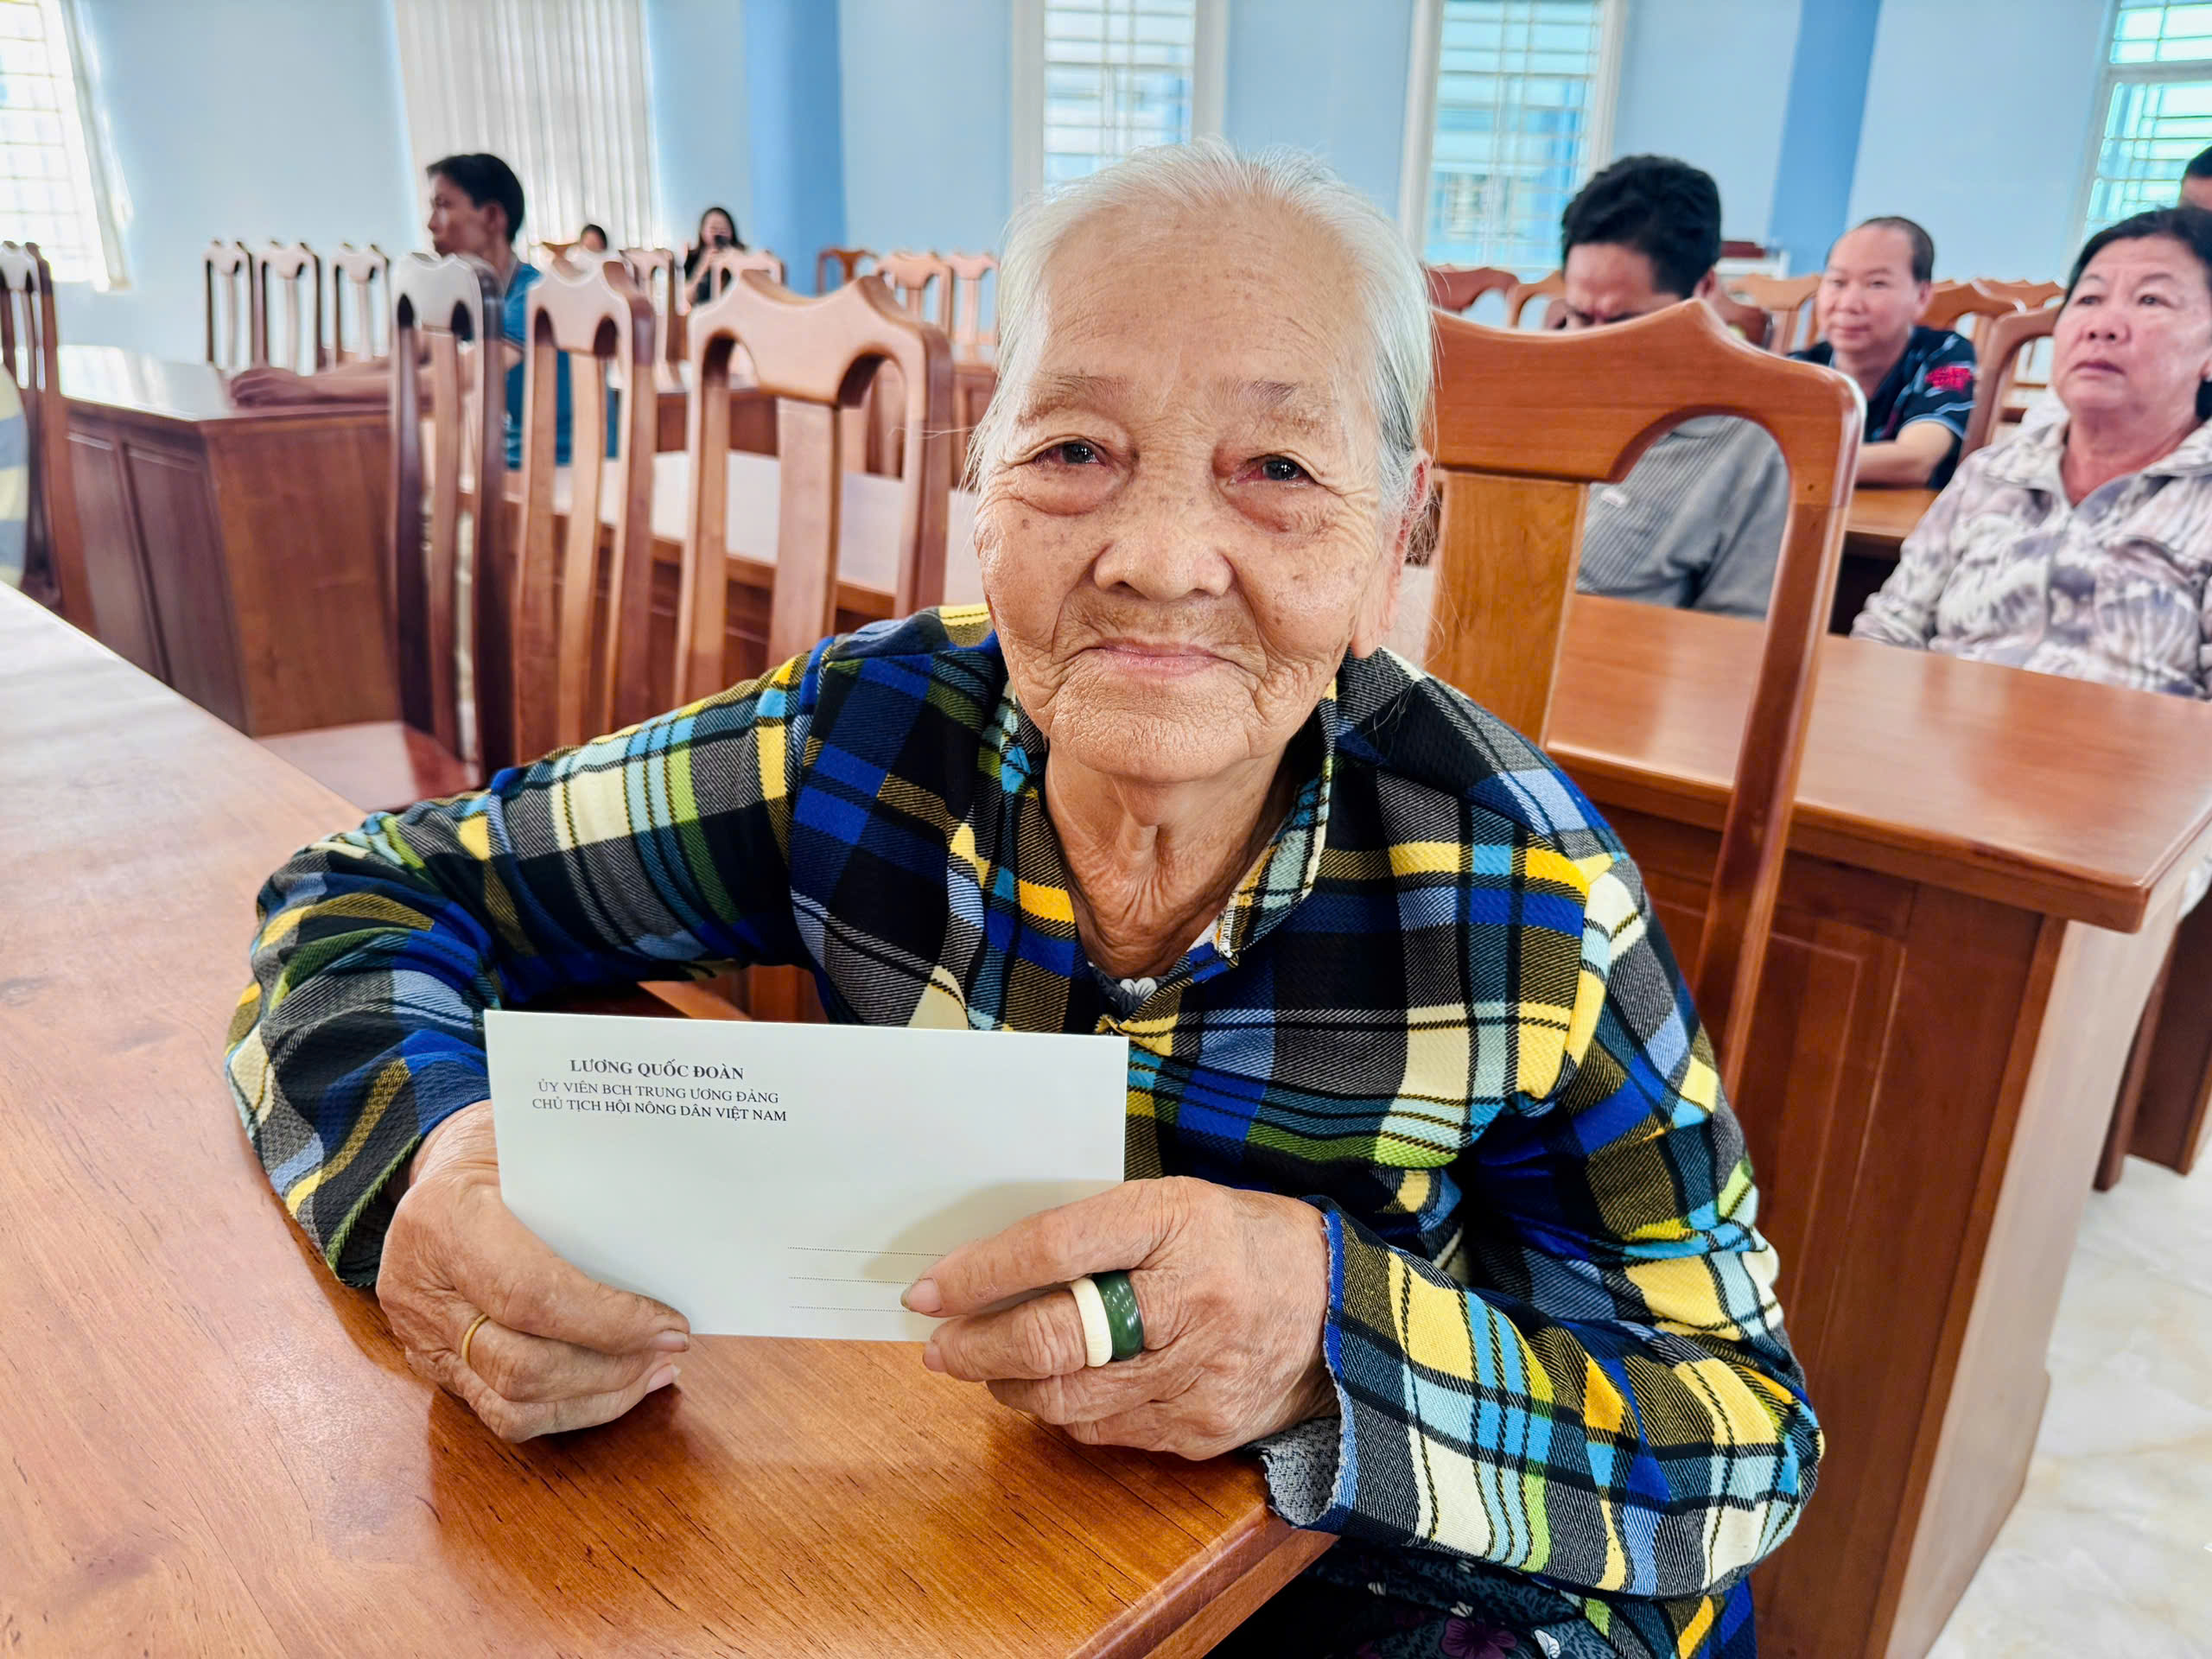 LƯƠNG QUỐC ĐOÀN
ỦY VIÊN BCH TRUNG ƯƠNG ĐẢNG
CHỦ TỊCH HỘI NÔNG DÂN VIỆT NAM